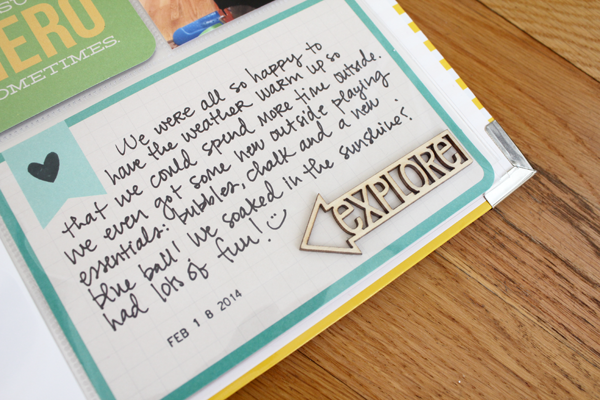 HERO
SOMETIMES.
We were all so happy to
have the weather warm up so
that we could spend more time outside.
We even got some new outside playing
essentials: bubbles, chalk and a new
blue ball! We soaked in the sunshine &
had lots of fun!
explore!
FEB 18 2014